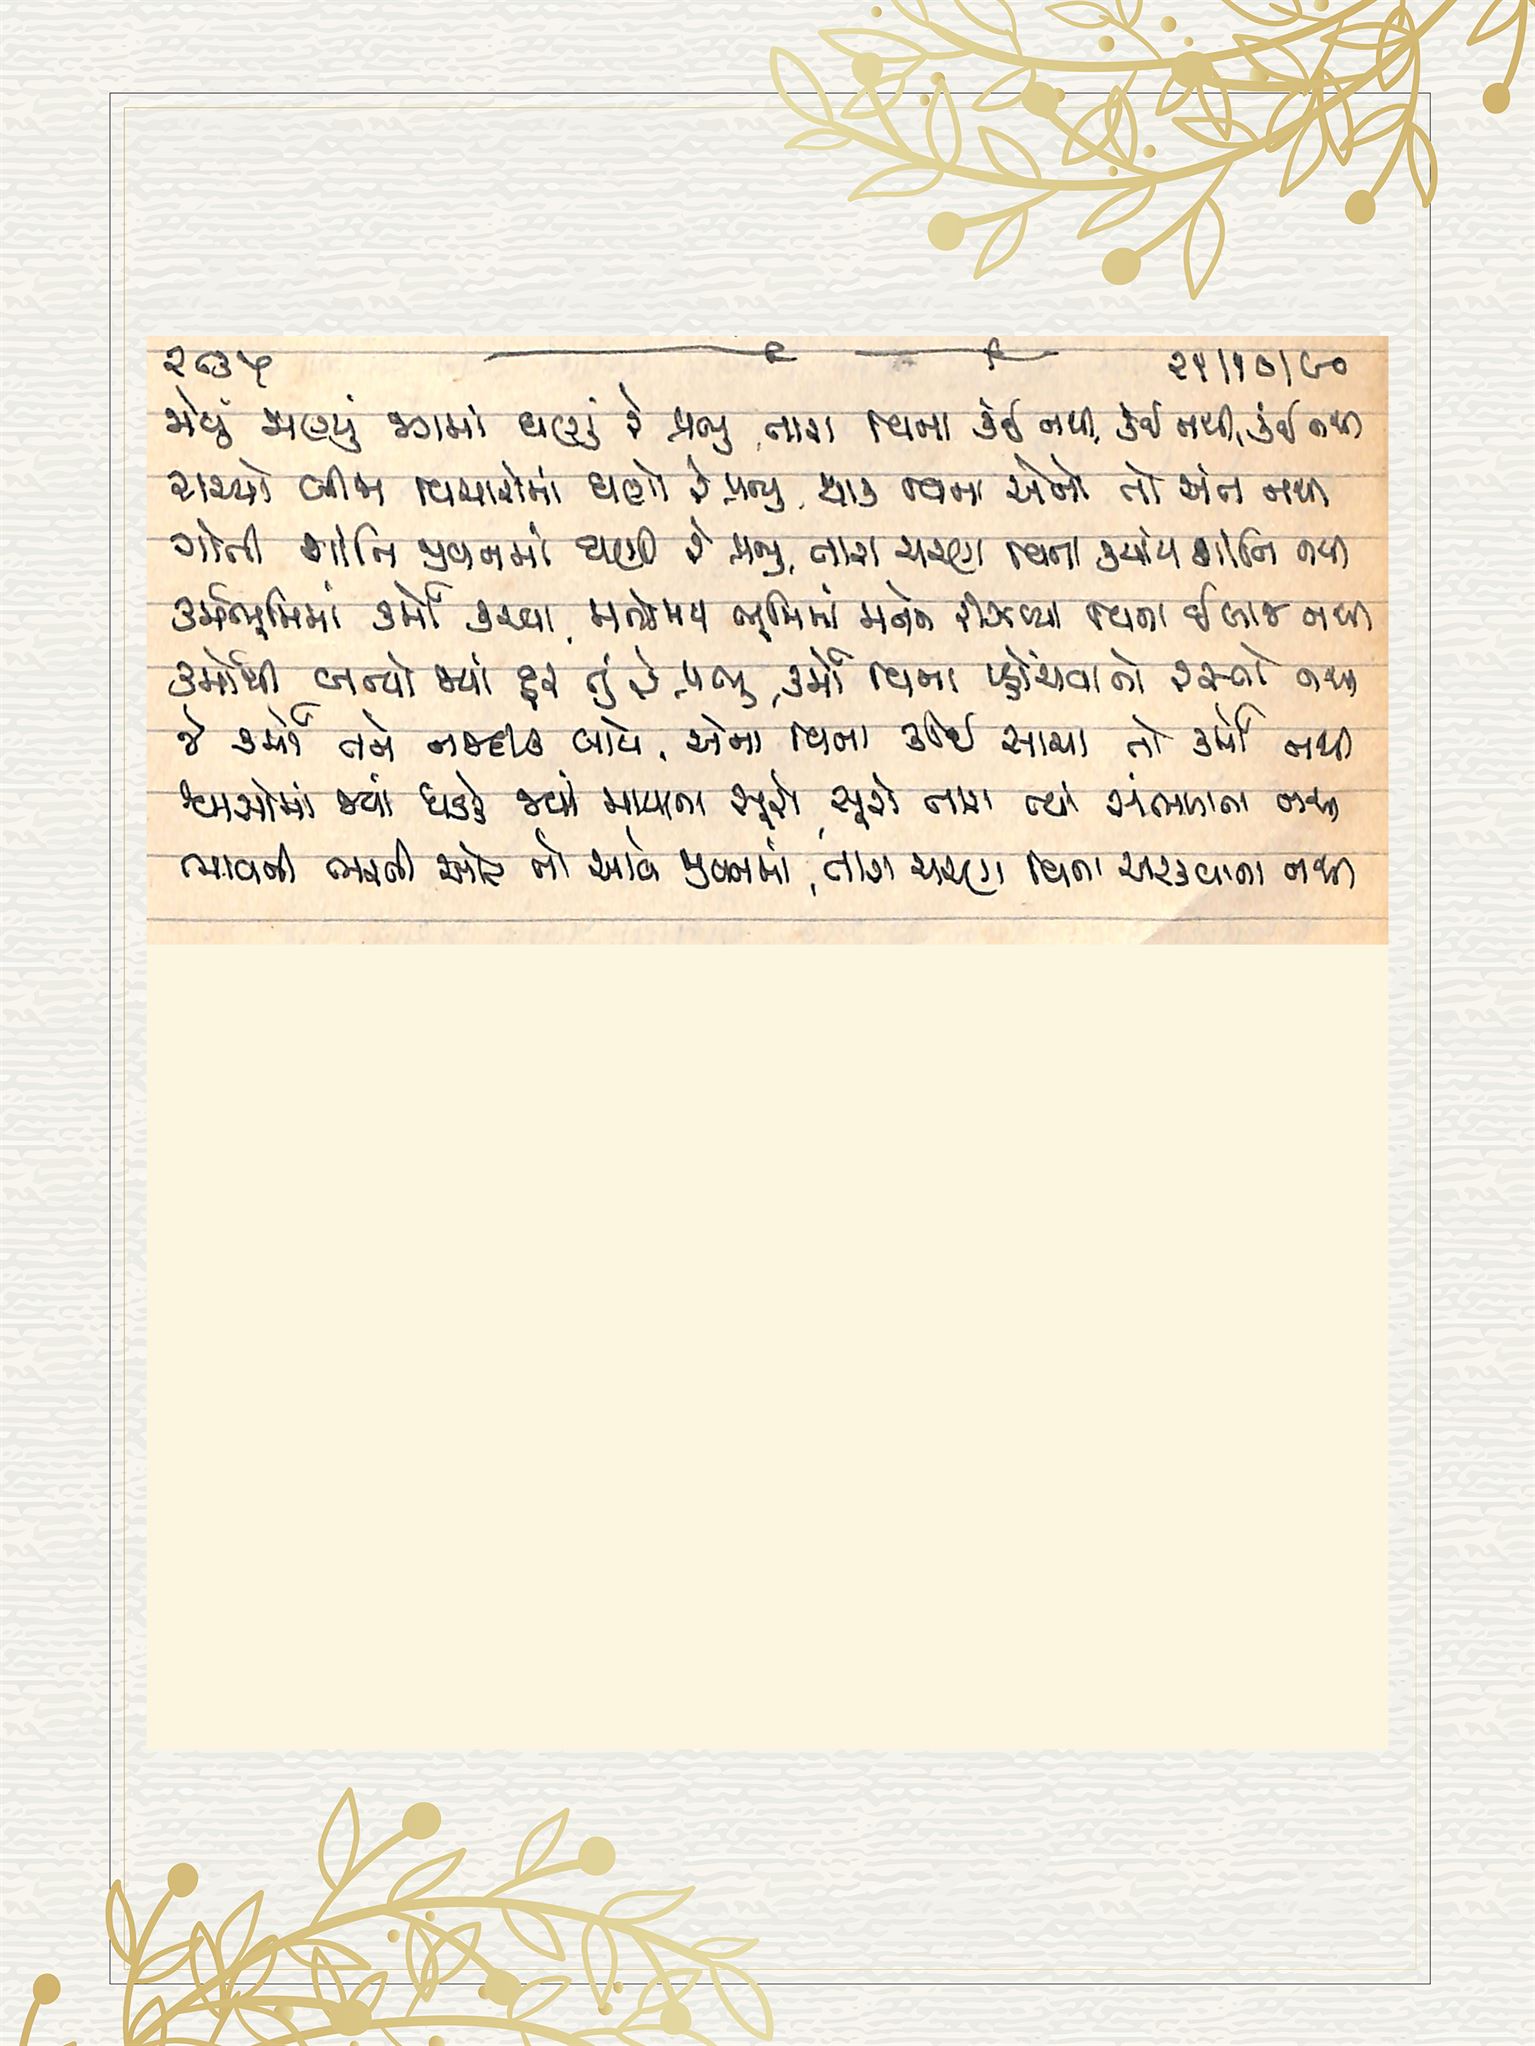 ૨૭૩૫ ૨૫/૧૦/૯૦
જોયું જાણ્યું જગમાં ઘણું રે પ્રભુ, તારા વિના કંઈ નથી, કંઈ નથી, કંઈ નથી
રાચ્યો બીજા વિચારોમાં ઘણો રે પ્રભુ, થાક વિના એનો તો અંત નથી
ગોતી શાંતિ જીવનમાં ઘણી રે પ્રભુ, તારા ચરણ વિના ક્યાંય શાંતિ નથી
કર્મભૂમિમાં કર્મો કરવા, મનોમય ભૂમિમાં મનને રીઝવ્યા વિના ઈલાજ નથી
કર્મોથી બન્યો જ્યાં દૂર તું રે પ્રભુ, કર્મો વિના પ્હોંચવાનો રસ્તો નથી
જે કર્મો તને નજદીક લાવે, એના વિના કોઈ સાચા તો કર્મો નથી
શ્વાસોમાં જ્યાં ધડકે જ્યાં માયાના સૂરો, સૂરો તારા ત્યાં સંભળાતા નથી
ભાવની ભરતી ઓટ તો આવે જીવનમાં, તારા ચરણ વિના અટકવાના નથી